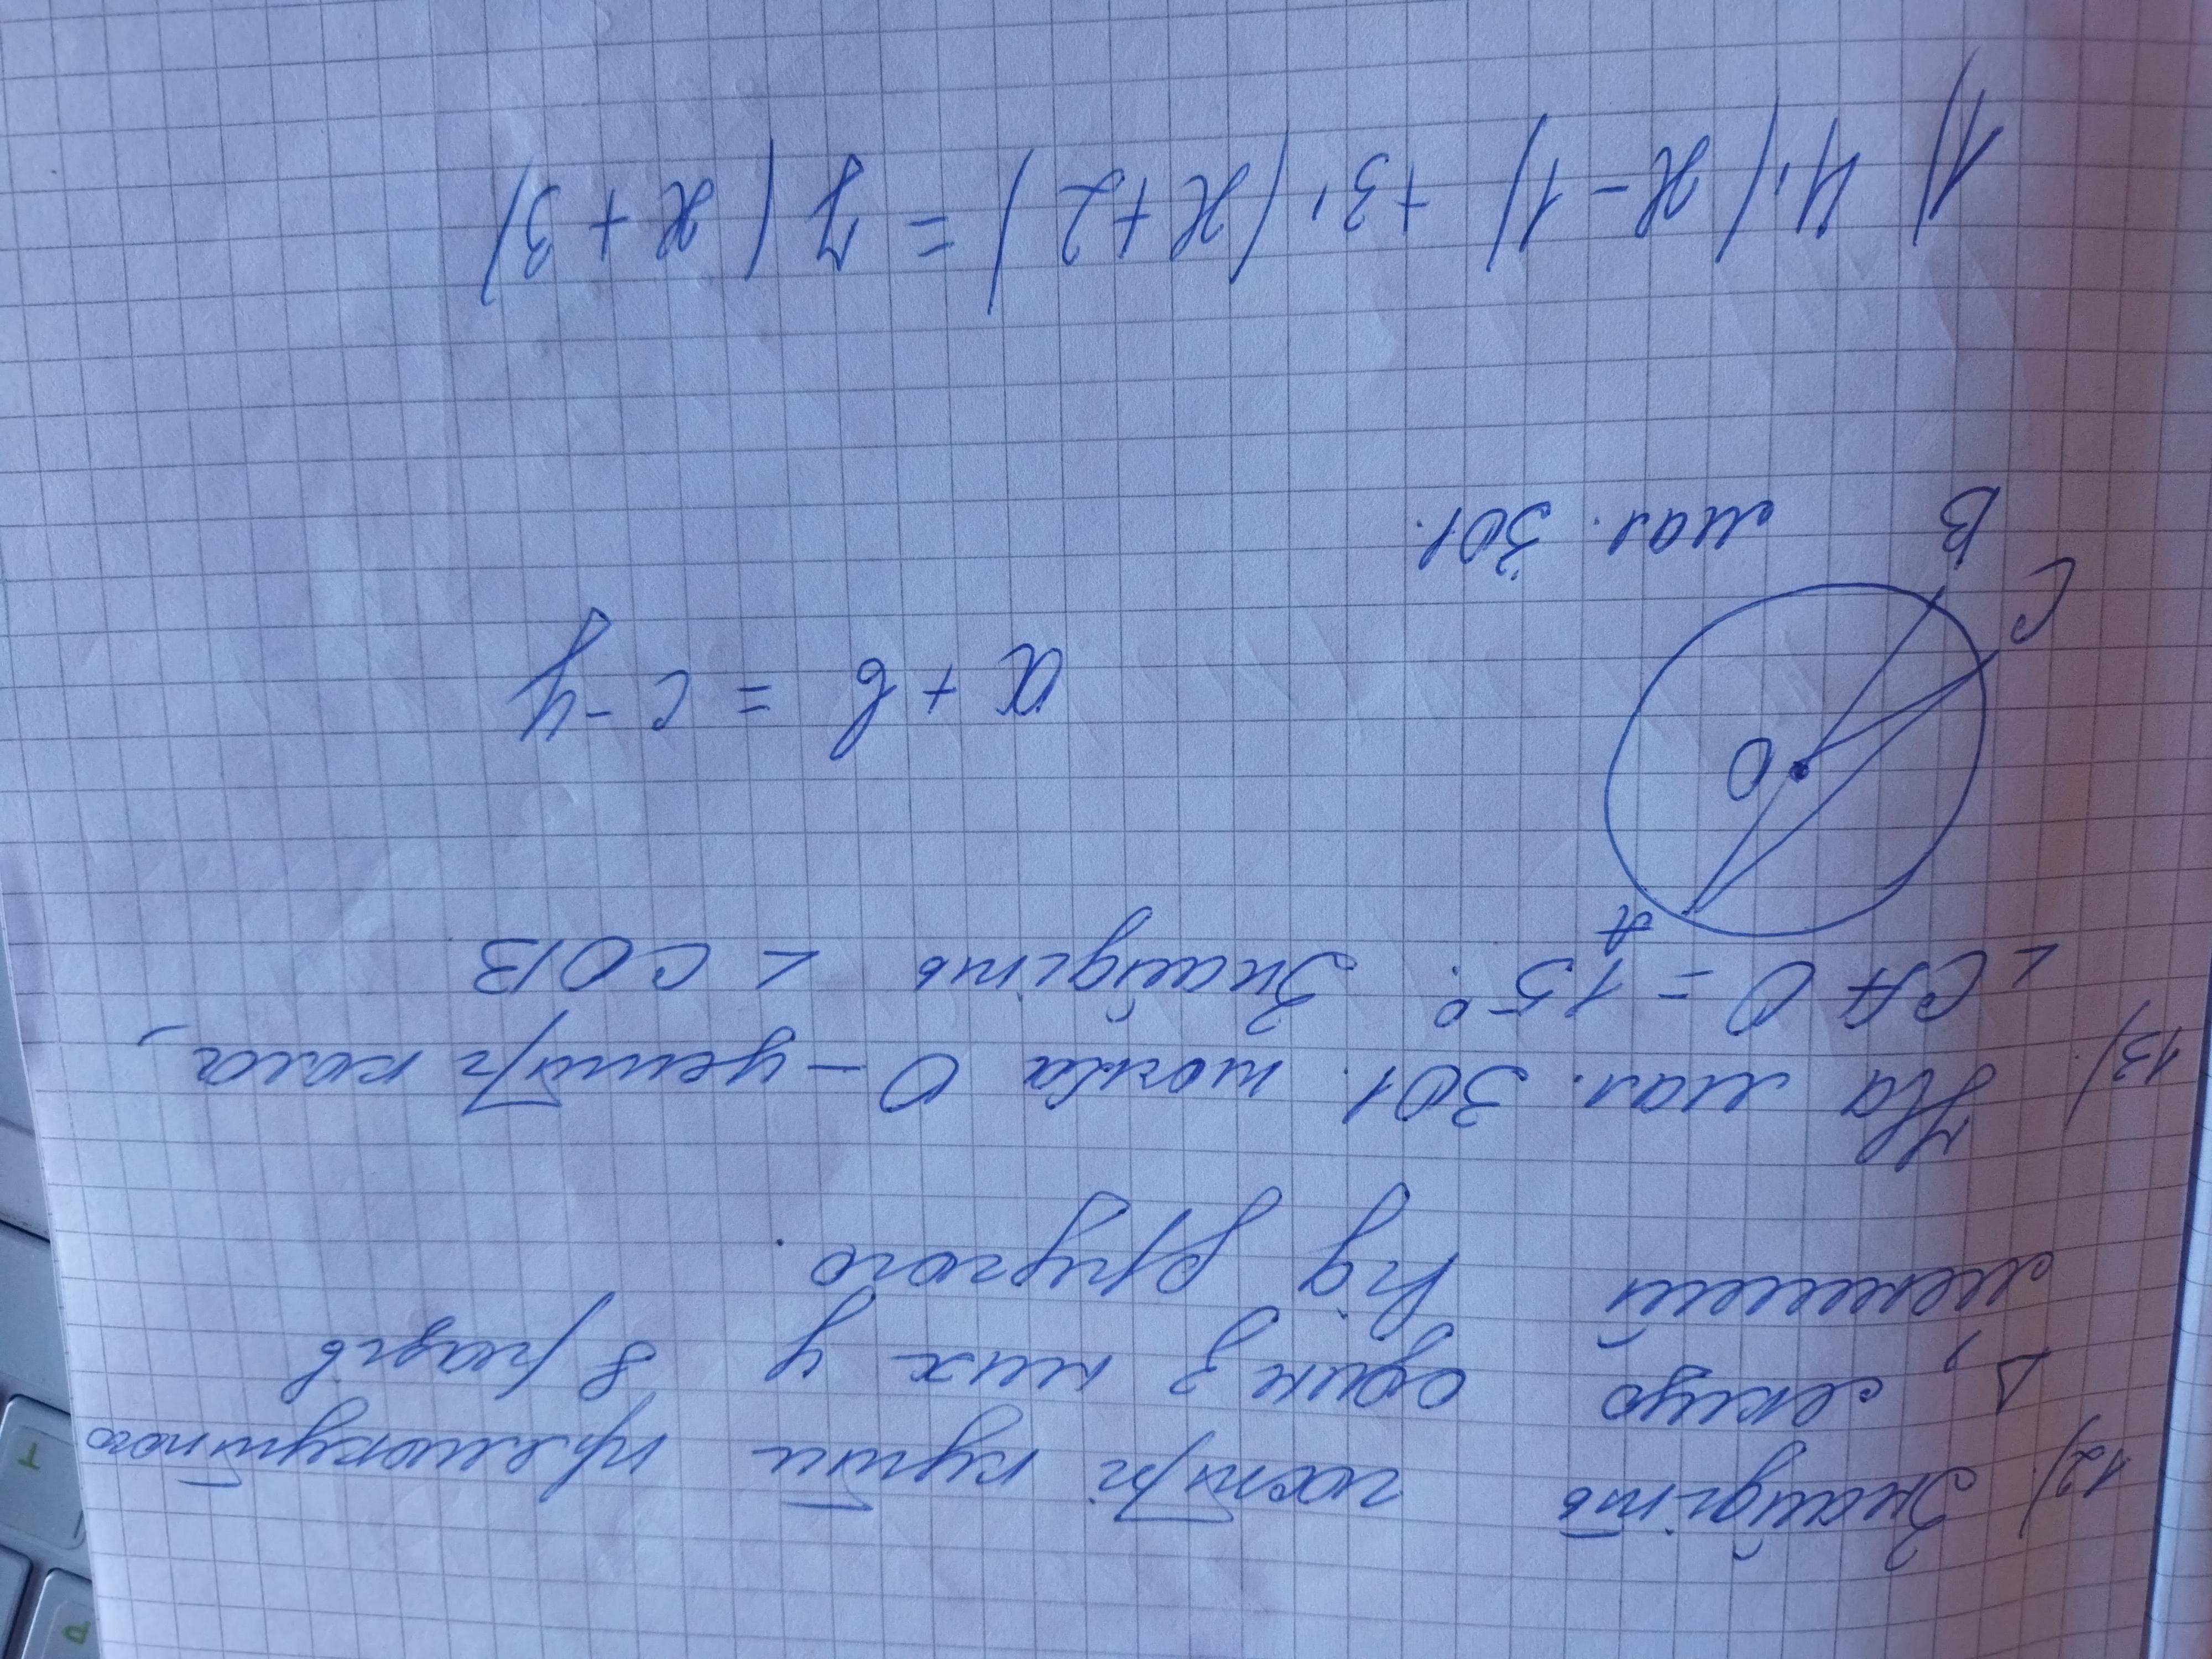 12). Знайдіть гострі кути прямокутного
Δ, якщо один з них у 8 разів
менший від другого.
13). На мал. 301 точка O - центр кола,
∠CAO = 15°. Знайдіть ∠COB
A
O
a + b = c - y
C
B
мал. 301.
1) 4,(x - 1) + 3,(x + 2) = 7(x + 3)
T
P